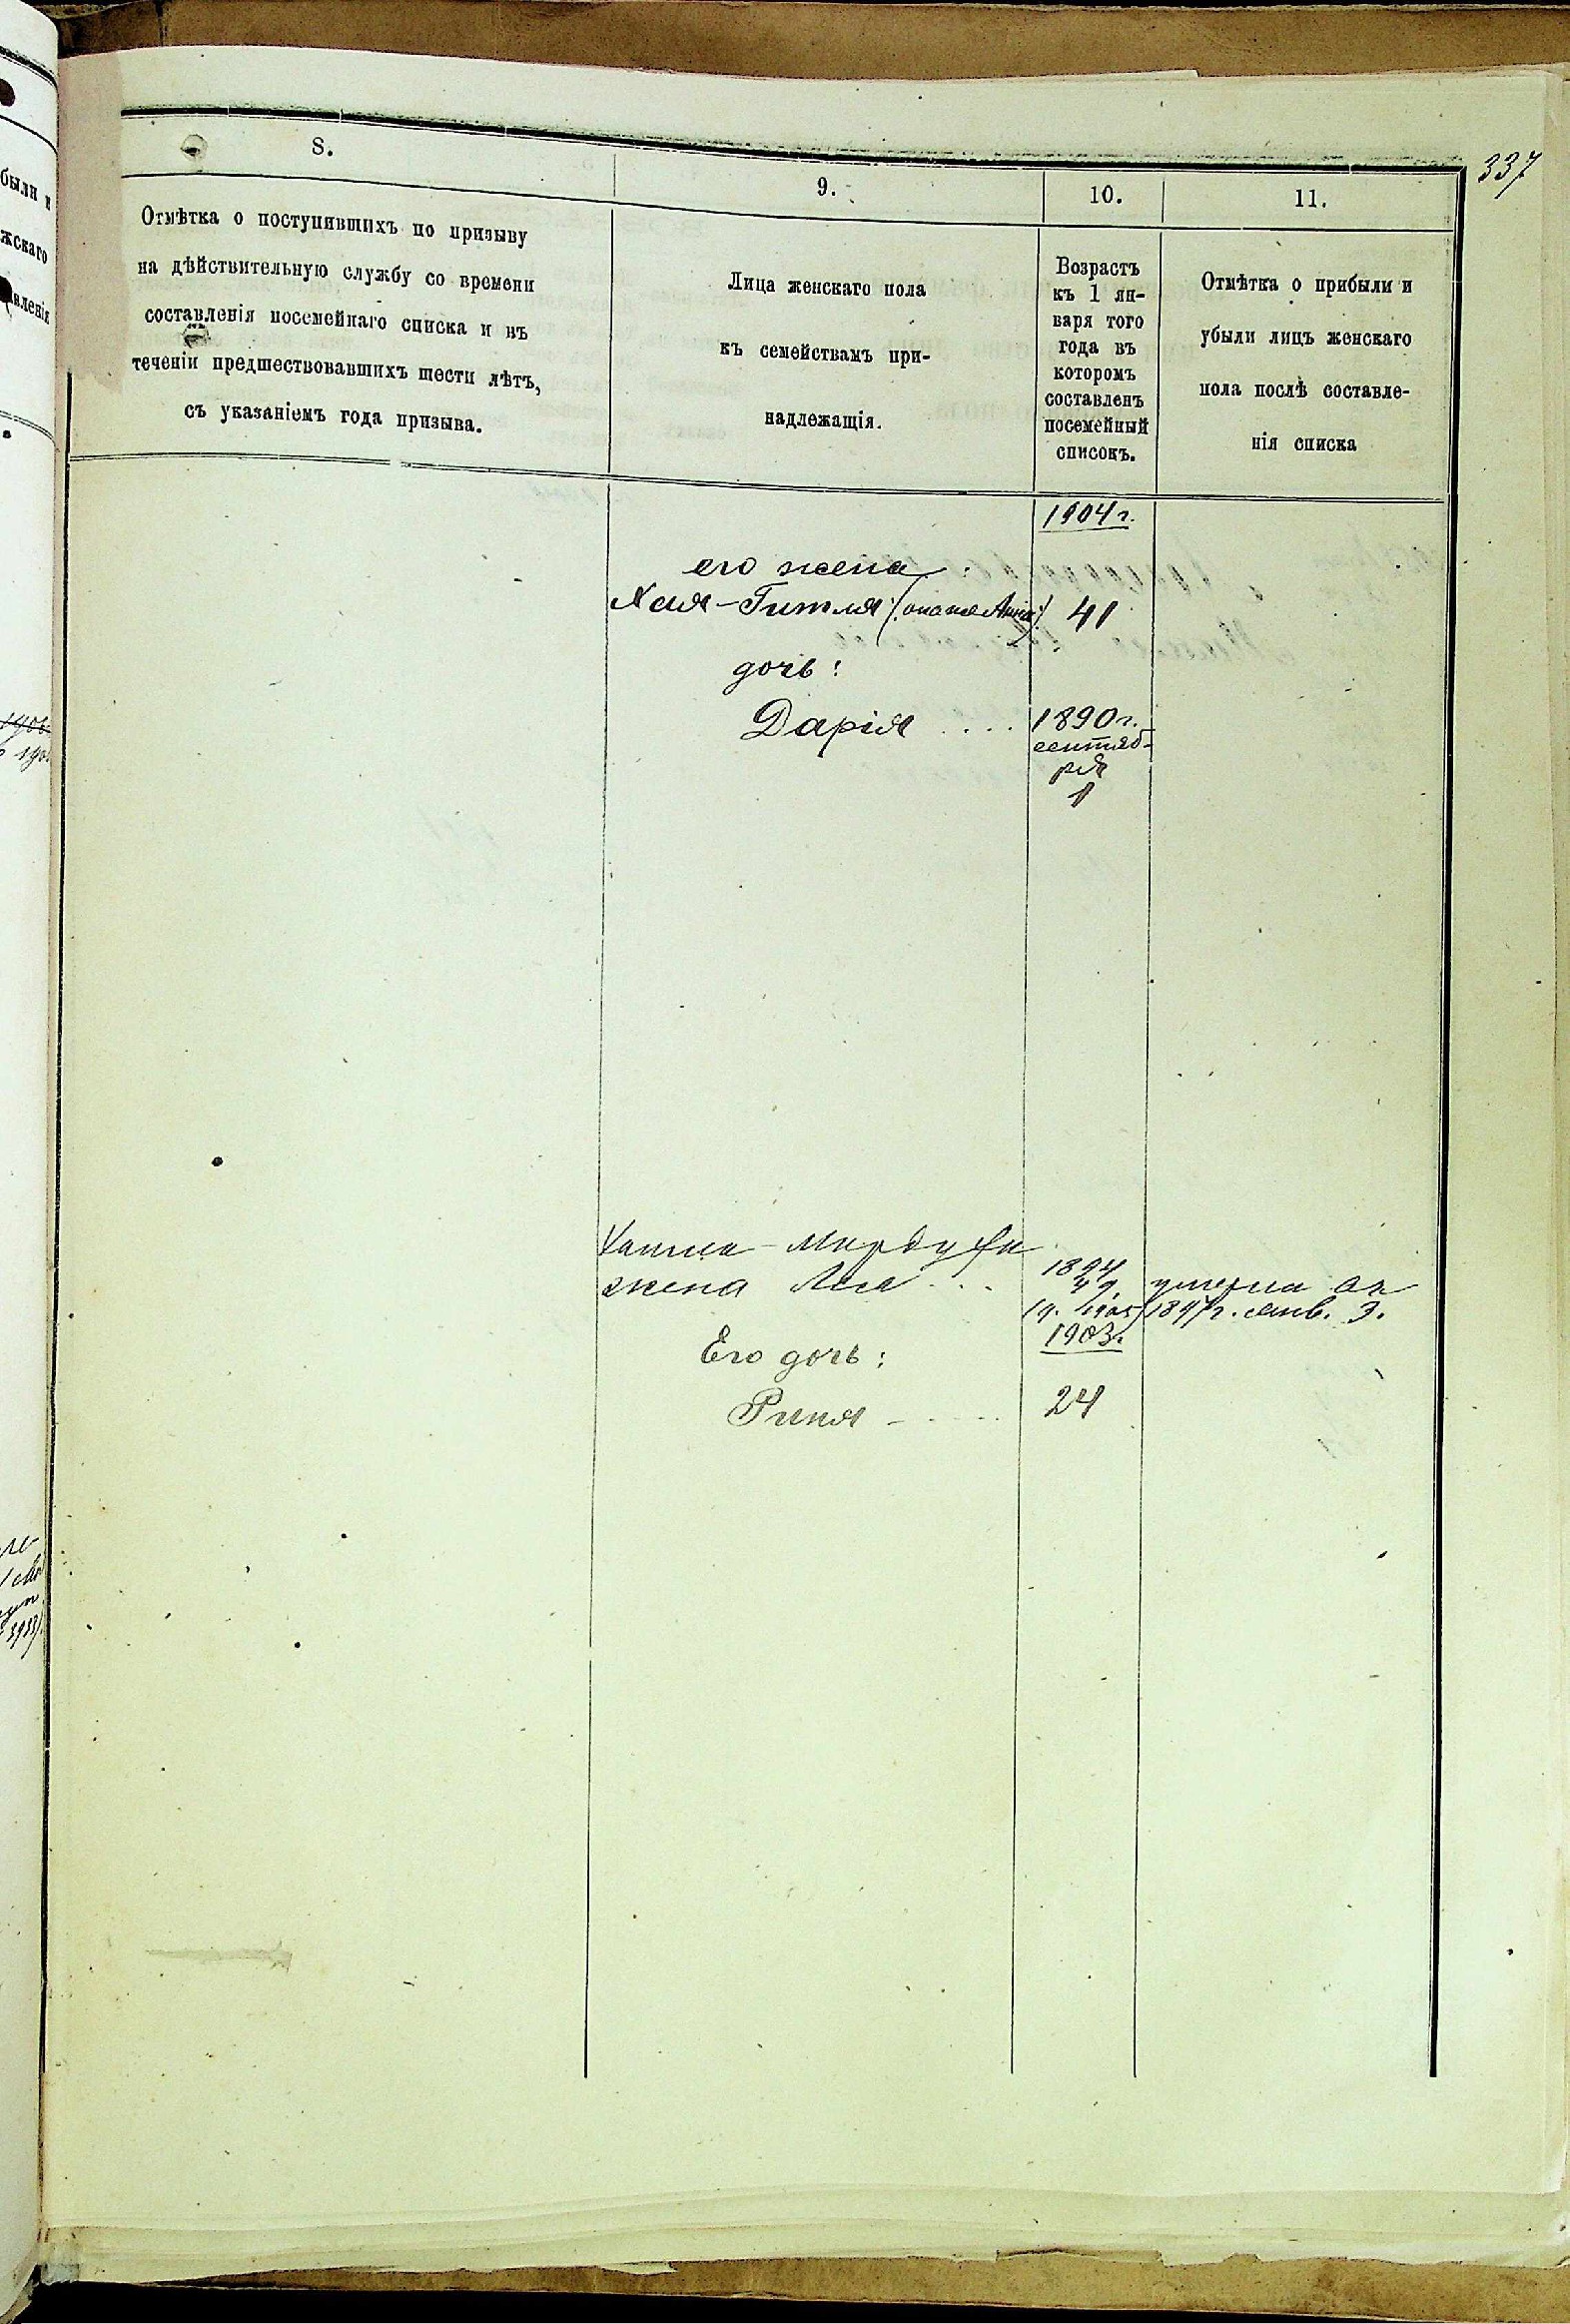 337
8.
9.
10.
11.
Отмѣтка о поступившихъ по призыву
на дѣйствительную службу со времени
составленія посемейнаго списка и въ
теченіи предшествовавшихъ шести лѣтъ,
съ указаніемъ года призыва.
Лица женскаго пола
къ семействамъ при-
надлежащія.
Возрастъ
къ 1 ян-
варя того
года въ
которомъ
составленъ
посемейный
списокъ.
Отмѣтка о прибыли и
убыли лицъ женскаго
пола послѣ составле-
нія списка
1904 г.
его жена
Хая-Гитля (она же Анна) 41
дочь:
Дарія .... 1890 г.
сентяб-
ря
1
жена ... 1894
49. умерла
1897 г. янв. 3.
1903 г.
Его дочь:
24